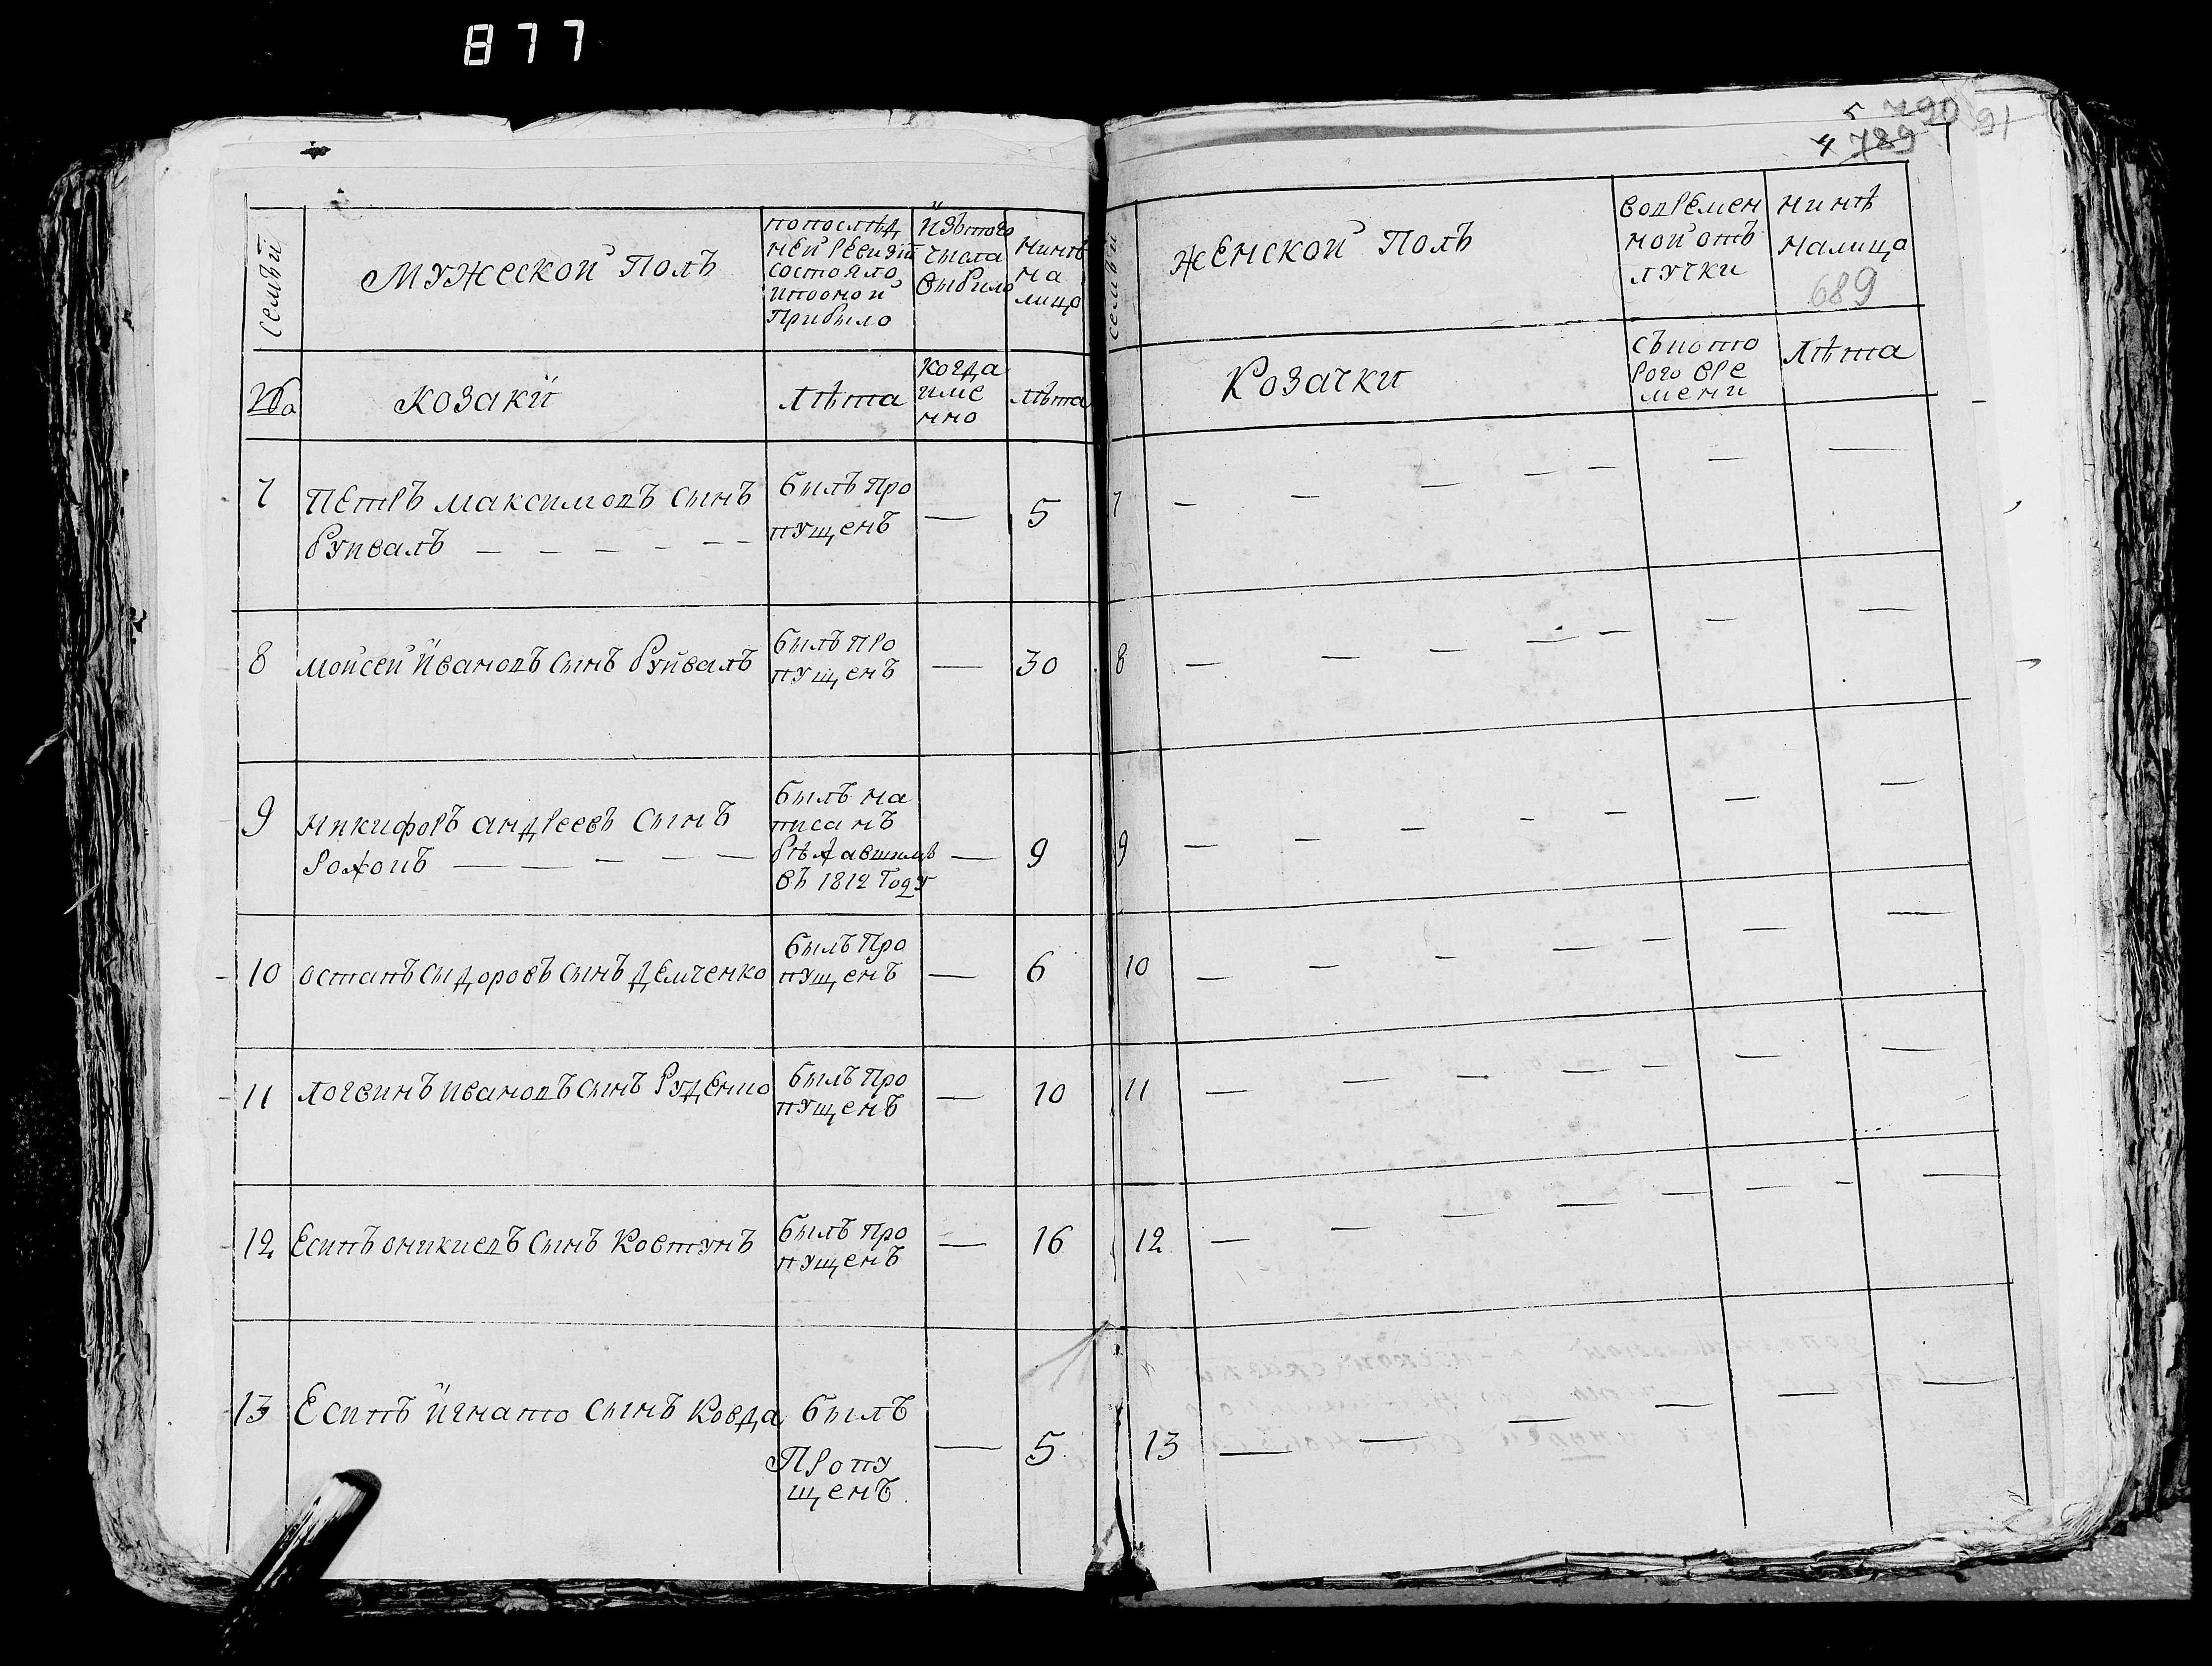 877
5 790 91
4 789
Семьи
Мужеской Полъ
попослѣд
ней ревизіи
состояло
ипооной
Прибыло
Изътого
числа
выбило
нинѣ
на
лицо
№
козаки
Лѣта
когда
име
нно
лѣта
7
Петръ максимовъ сынъ
был про
Руйвалъ — — — — — —
пущенъ
—
5
8
мойсей ивановъ сынъ Руйвалъ
былъ про
пущенъ
—
30
9
Никифоръ андреевъ сынъ
Рожокъ — — — — —
былъ на
писанъ
рѣждавшимъ
въ 1812 Году
—
9
10
остапъ сыдоровъ сынъ демченко
былъ Про
пущенъ
—
6
11
логвинъ ивановъ сынъ Руденко
былъ про
пущенъ
—
10
12
Есипъ оникиевъ сынъ Ковтунъ
былъ про
пущенъ
—
16
13
Есипъ игнато сынъ Ковда
былъ
Пропу
щенъ
—
5
семьи
женской Полъ
вовремен
ной отъ
лучки
нинѣ
налицо
689
Козачки
съкото
рого вре
мени
Лѣта
7 — — — — — — —
8 — — — — — — —
9 — — — — — — —
10 — — — — — — —
11 — — — — — — —
12 — — — — — — — —
13 — — — — — —